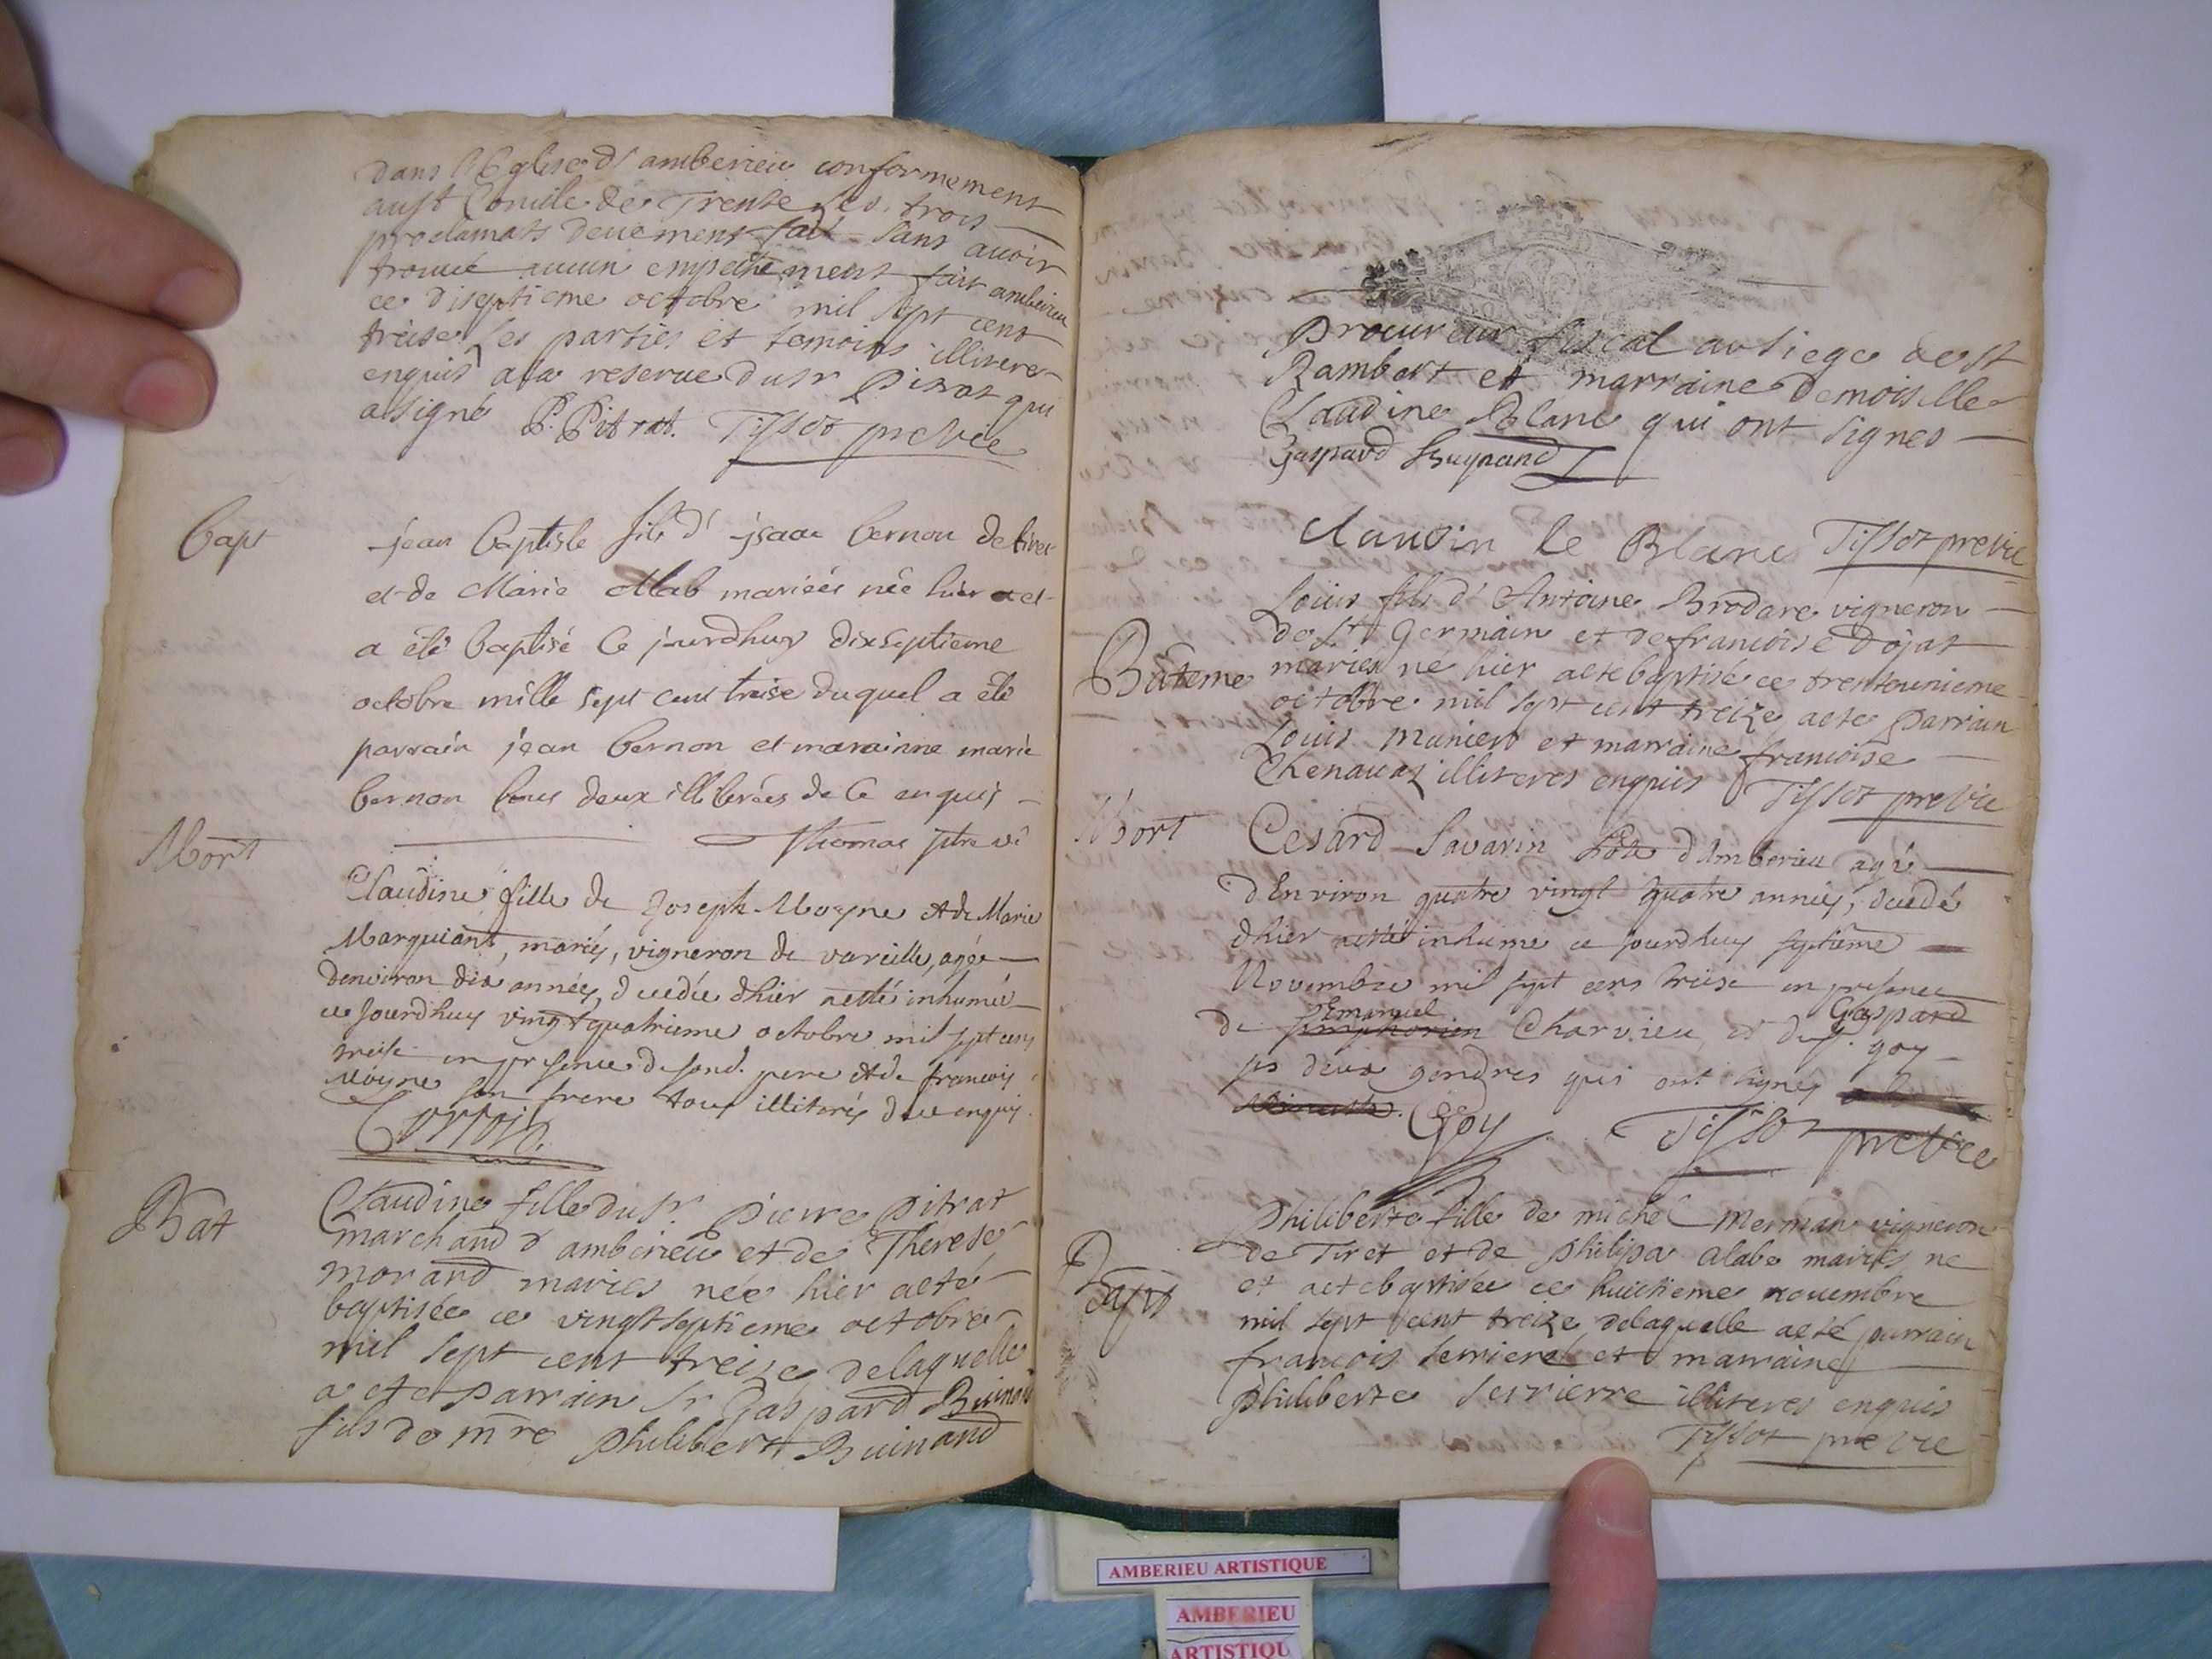 dans l'Eglise d'amberieu conformement
au st Concile de Trente les trois
proclamats deuement fait sans avoir
trouué aucun empeschement fait amberieu
ce diseptieme octobre mil sept cent
treise les parties et temoins illiteres
enquis a la reserue du sr Pitrat qui
a signé P. Pitrat. Tissot pre vic
Bapt
jean baptiste fils d' jsaac bernon de tiret
et de Marie Alab mariées née hier et
a été baptisé ce jourdhuy dixseptieme
octobre mille sept cent treise duquel a été
parrain jean bernon et marainne marie
bernon tous deux illiterées de ce enquis
Thomas ptre vi
Mort
Claudine fille de Joseph Moyne et de Marie
Marguiant, mariés, vigneron de vareille, agée
denviron dix années, decedée dhier a esté inhumée
ce jourdhuy vingt quatrieme octobre mil sept cens
treise en presence de son d. pere et de francois
Moyne son frere tous illiterés de ce enquis.
Bat
Claudine fille du sr. Pierre Pitrat
marchand d'amberieu et de Therese
morand maries née hier a eté
baptisée ce vingt septieme octobre
mil sept cent treize delaquelle
a ete parrain sr Gaspard Buinand
fils de mre philibert Buinand
procureur fiscal au siege de st
Rambert et marraine demoiselle
Claudine Blanc qui ont signes
Gaspard Buynand
Claudin le Blanc Tissot pre vic
Louis fils d' Antoine Brodare vigneron
de st Germain et de francoise Dojat
Bâteme
maries né hier a ete baptisé ce trenteunieme
octobre mil sept cent treize a ete parrain
Louis munier et marraine francoise
Chenauaz illiteres enquis Tissot pre vic
Mort
Cesard Savarin hôte d'Amberieu agé
d'Environ quatre vingt quatre années, decedé
dhier a esté inhumé ce jourdhuy septième
Novembre mil sept cens treise en presence
Emanuel Gaspard
de simphorien Charvieu et du sr. goy
ses deux gendres qui ont signés
Goy Tissot pre vic
philiberte fille de michel merman vigneron
de Tiret et de philipa alabe mariés ne
Bapt
et a ete baptisée ce huictieme nouembre
mil sept cent treize delaquelle a eté parrain
francois serriere et marraine
philiberte serrierre illiteres enquis
Tissot pre vic
AMBERIEU ARTISTIQUE
AMBERIEU
ARTISTIQU